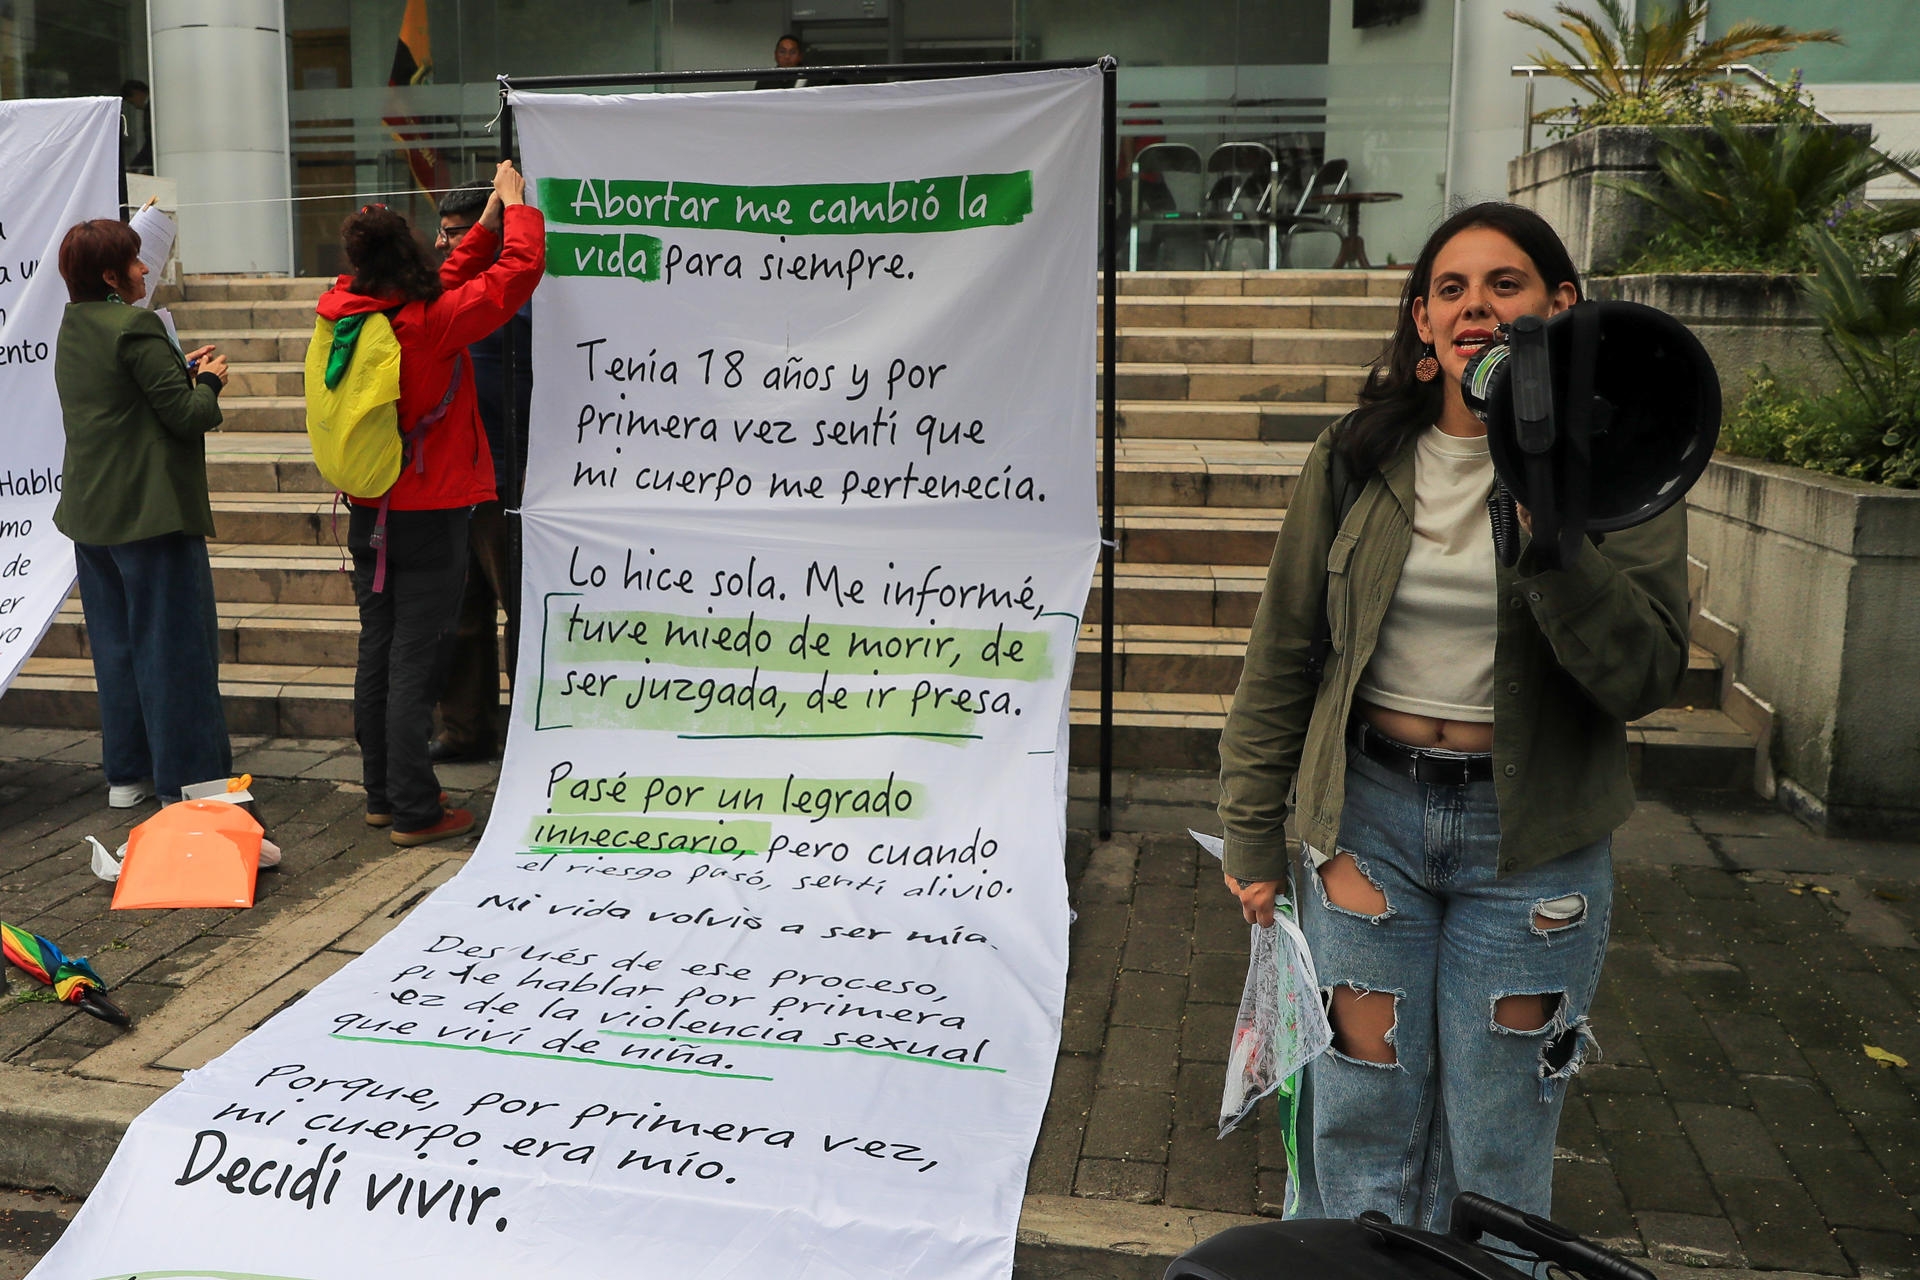 Abortar me cambió la
vida para siempre.
Tenía 18 años y por
primera vez sentí que
mi cuerpo me pertenecía.
Lo hice sola. Me informé,
tuve miedo de morir, de
ser juzgada, de ir presa.
Pasé por un legrado
innecesario, pero cuando
el riesgo pasó, sentí alivio.
Mi vida volvió a ser mía.
Des ués de ese proceso,
de hablar por primera
ez de la violencia sexual
que viví de niña.
Porque, por primera vez,
mi cuerpo era mío.
Decidí vivir.
ento
Hablo
mo
de
er
ro